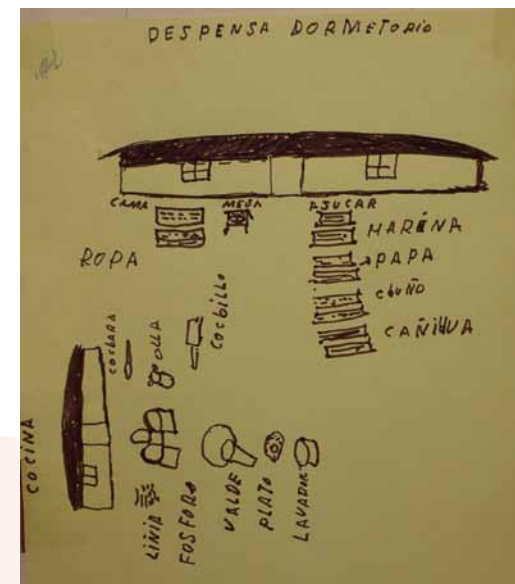 DESPENSA DORMETORIO
CAMA
MESA
ASUCAR
ROPA
HARÉNA
PAPA
CHUÑO
CAÑIHUA
COCINA
COCHARA
OLLA
COCHILLO
LIÑIA
FOSFORO
VALDE
PLATO
LAVADOR